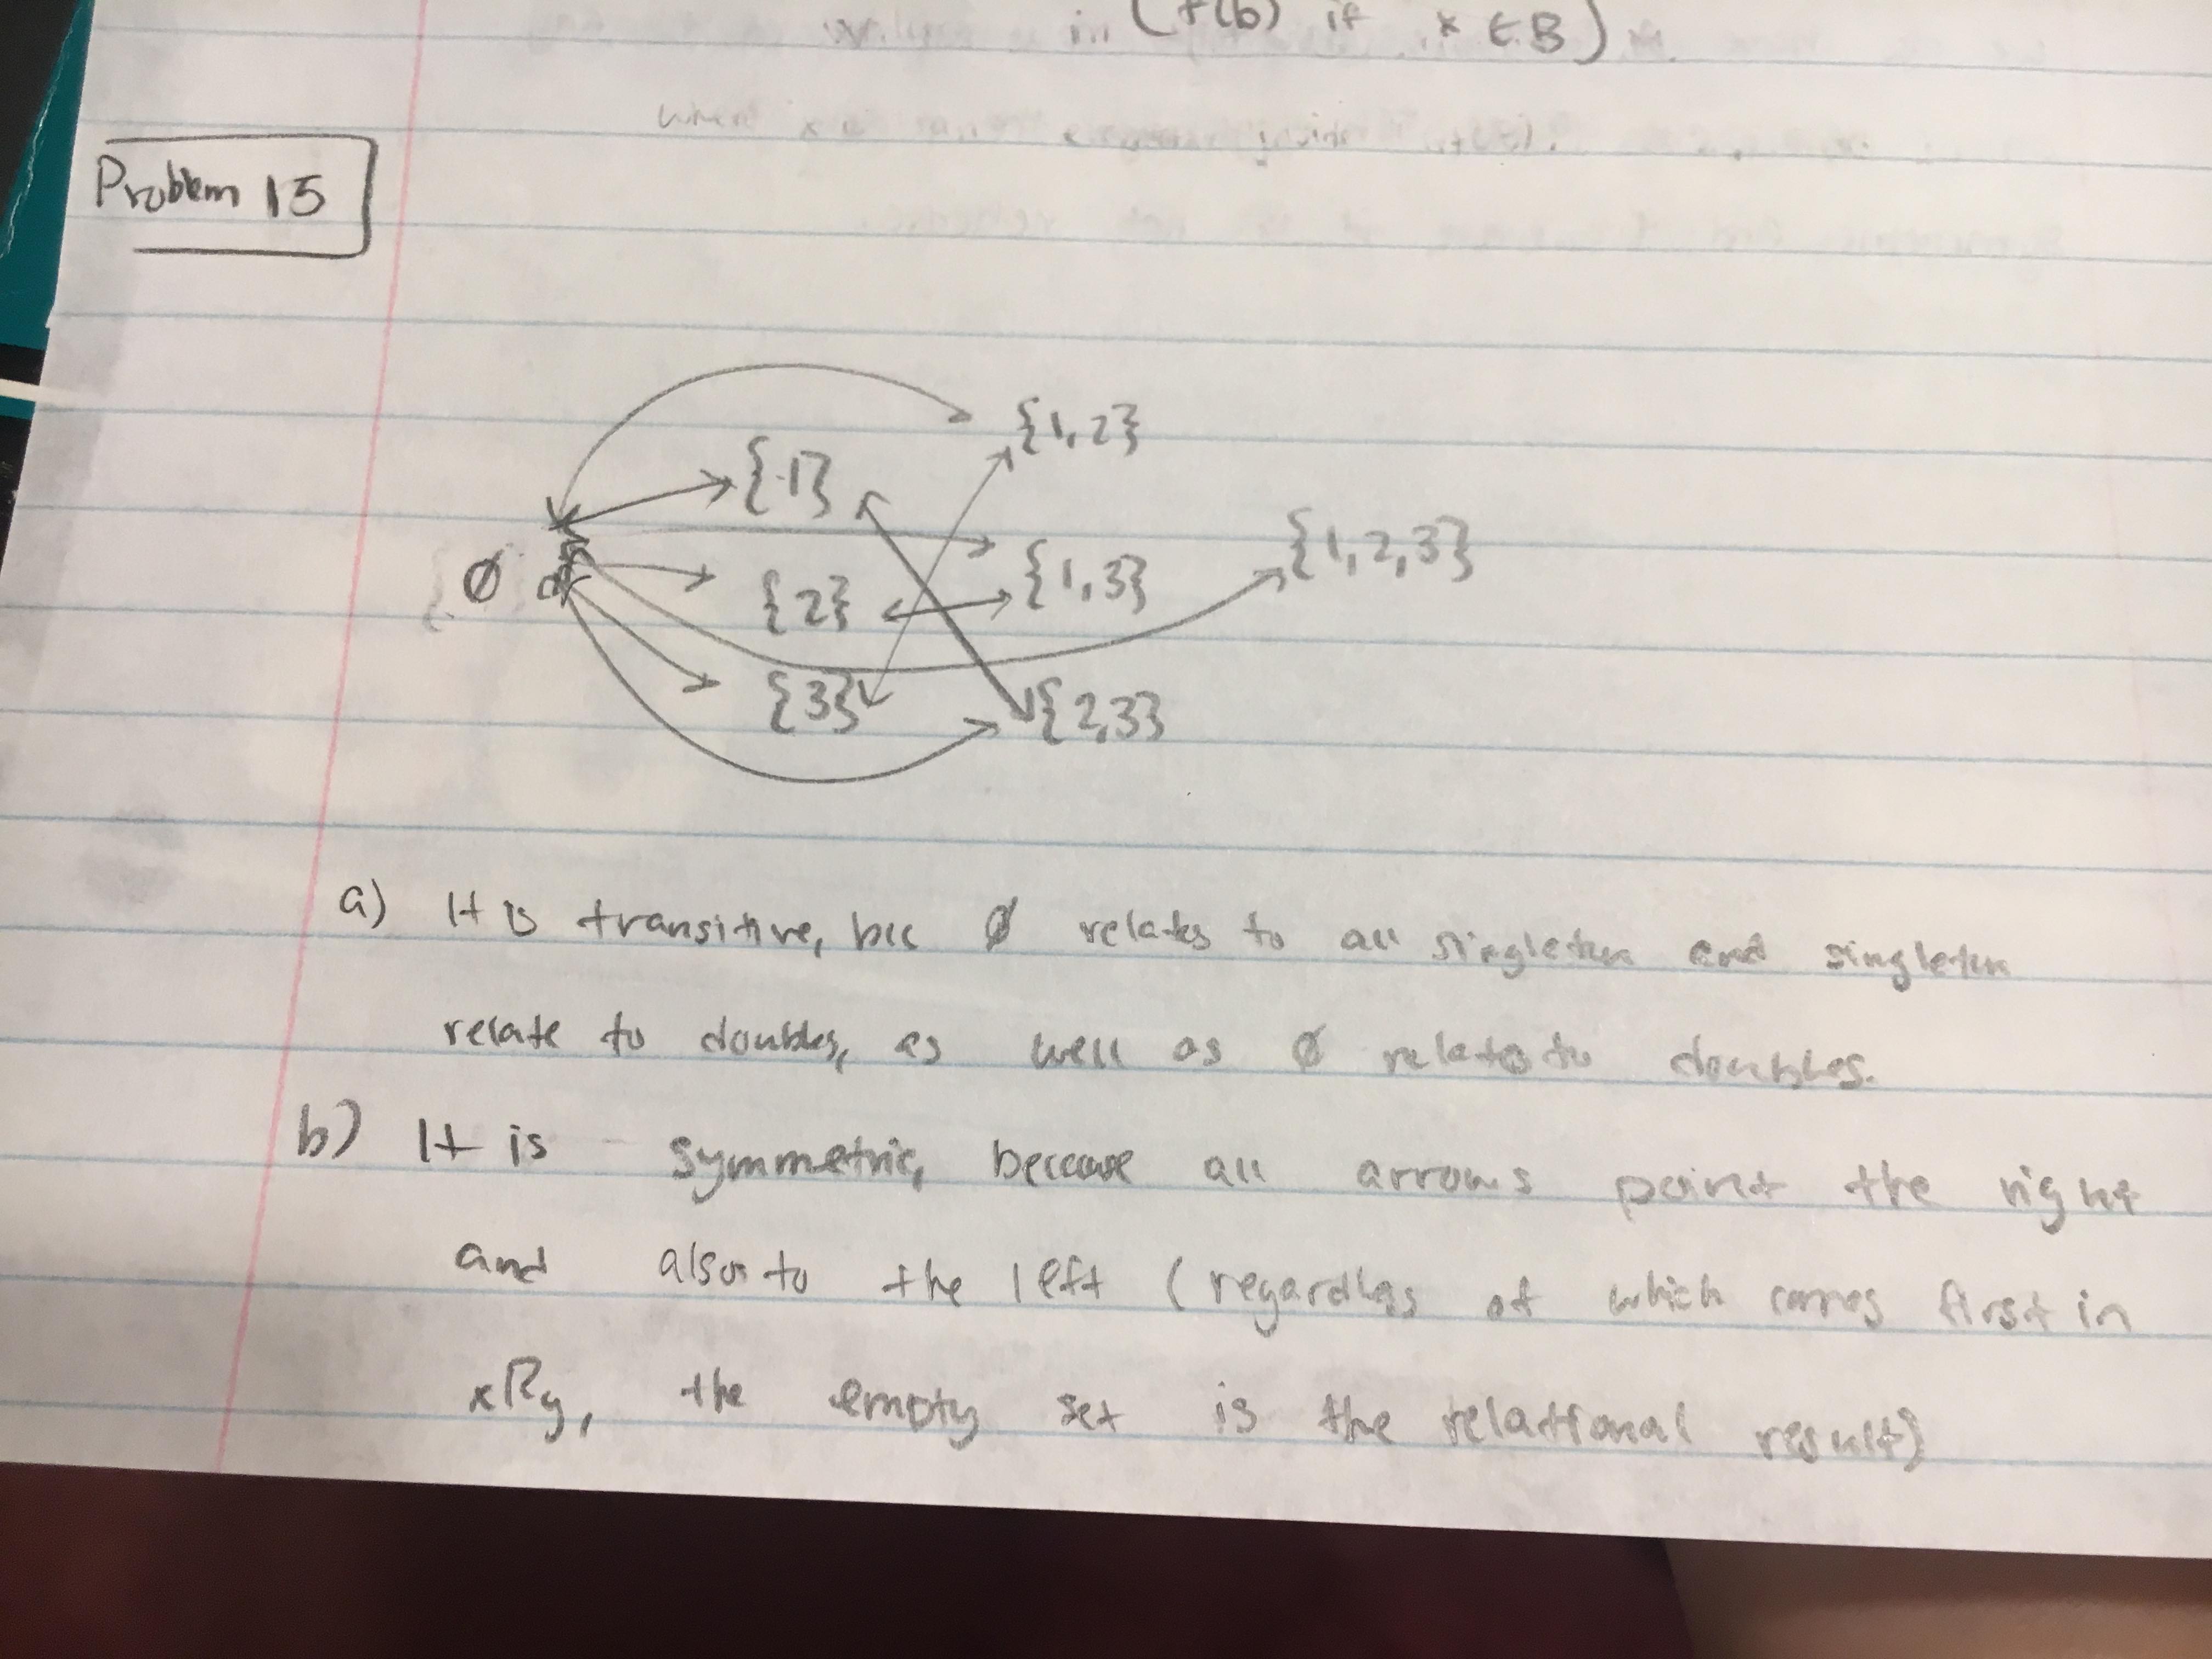 (f(b) if x ∈ B)
Problem 15
{1,2}
{1}
{1,2,3}
∅ {2} {1,3}
{3} {2,3}
a) It is transitive, b/c ∅ relates to all singleton and singleton
relate to doubles, as well as ∅ relates to doubles.
b) It is symmetric, because all arrows point the right
and also to the left (regardless of which comes first in
xRy, the empty set is the relational result)